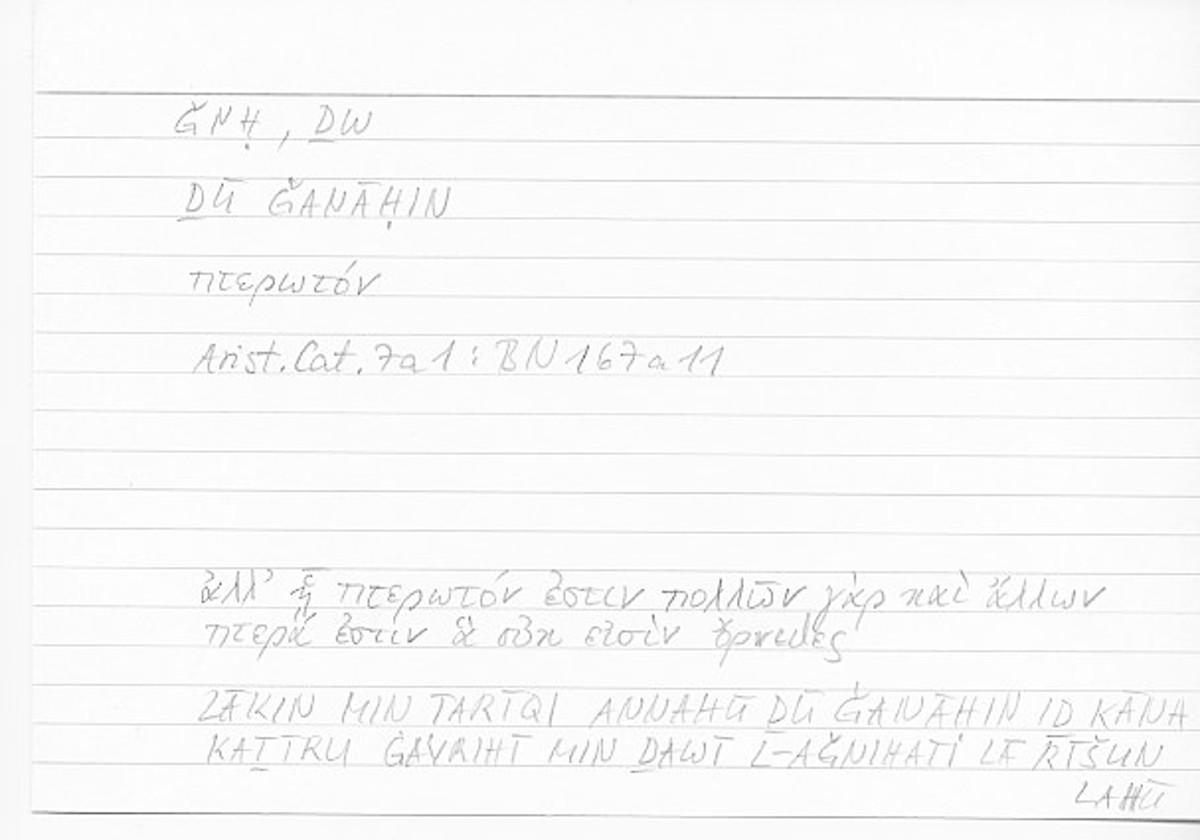 ǦNḤ, ḎW
ḎŪ ǦANĀḤIN
πτερωτόν
Arist. Cat. 7a1 : BN 167a11
ἀλλ' ᾗ πτερωτόν ἐστιν πολλῶν γὰρ καὶ ἄλλων
πτερά ἐστιν ἃ οὐκ εἰσὶν ὄρνιθες
LĀKIN MIN TARĪQI ANNAHŪ ḎŪ ǦANĀHIN ID KĀNA
MIN ḎAWĪ L-AǦNIHATI LĀ RĪŠUN
LAHŪ